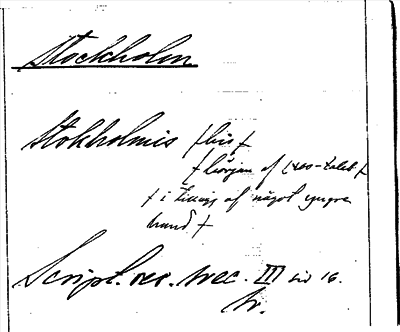 Stockholm
Stokholmis / bis /
/ början af 1400-talet /
/ i tillägg af något yngre
hand /
Script. rer. svec. III sid 16.